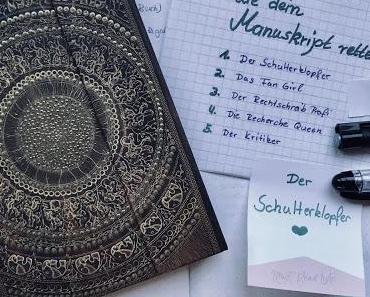 Buch)
aus dem
Manuskript rette
1. Der Schulterklopfer
2. Das Fan Girl
3. Der Rechtschreib Profi
4. Die Recherche Queen
5. Der Kritiker
Der
Schulterklopfer